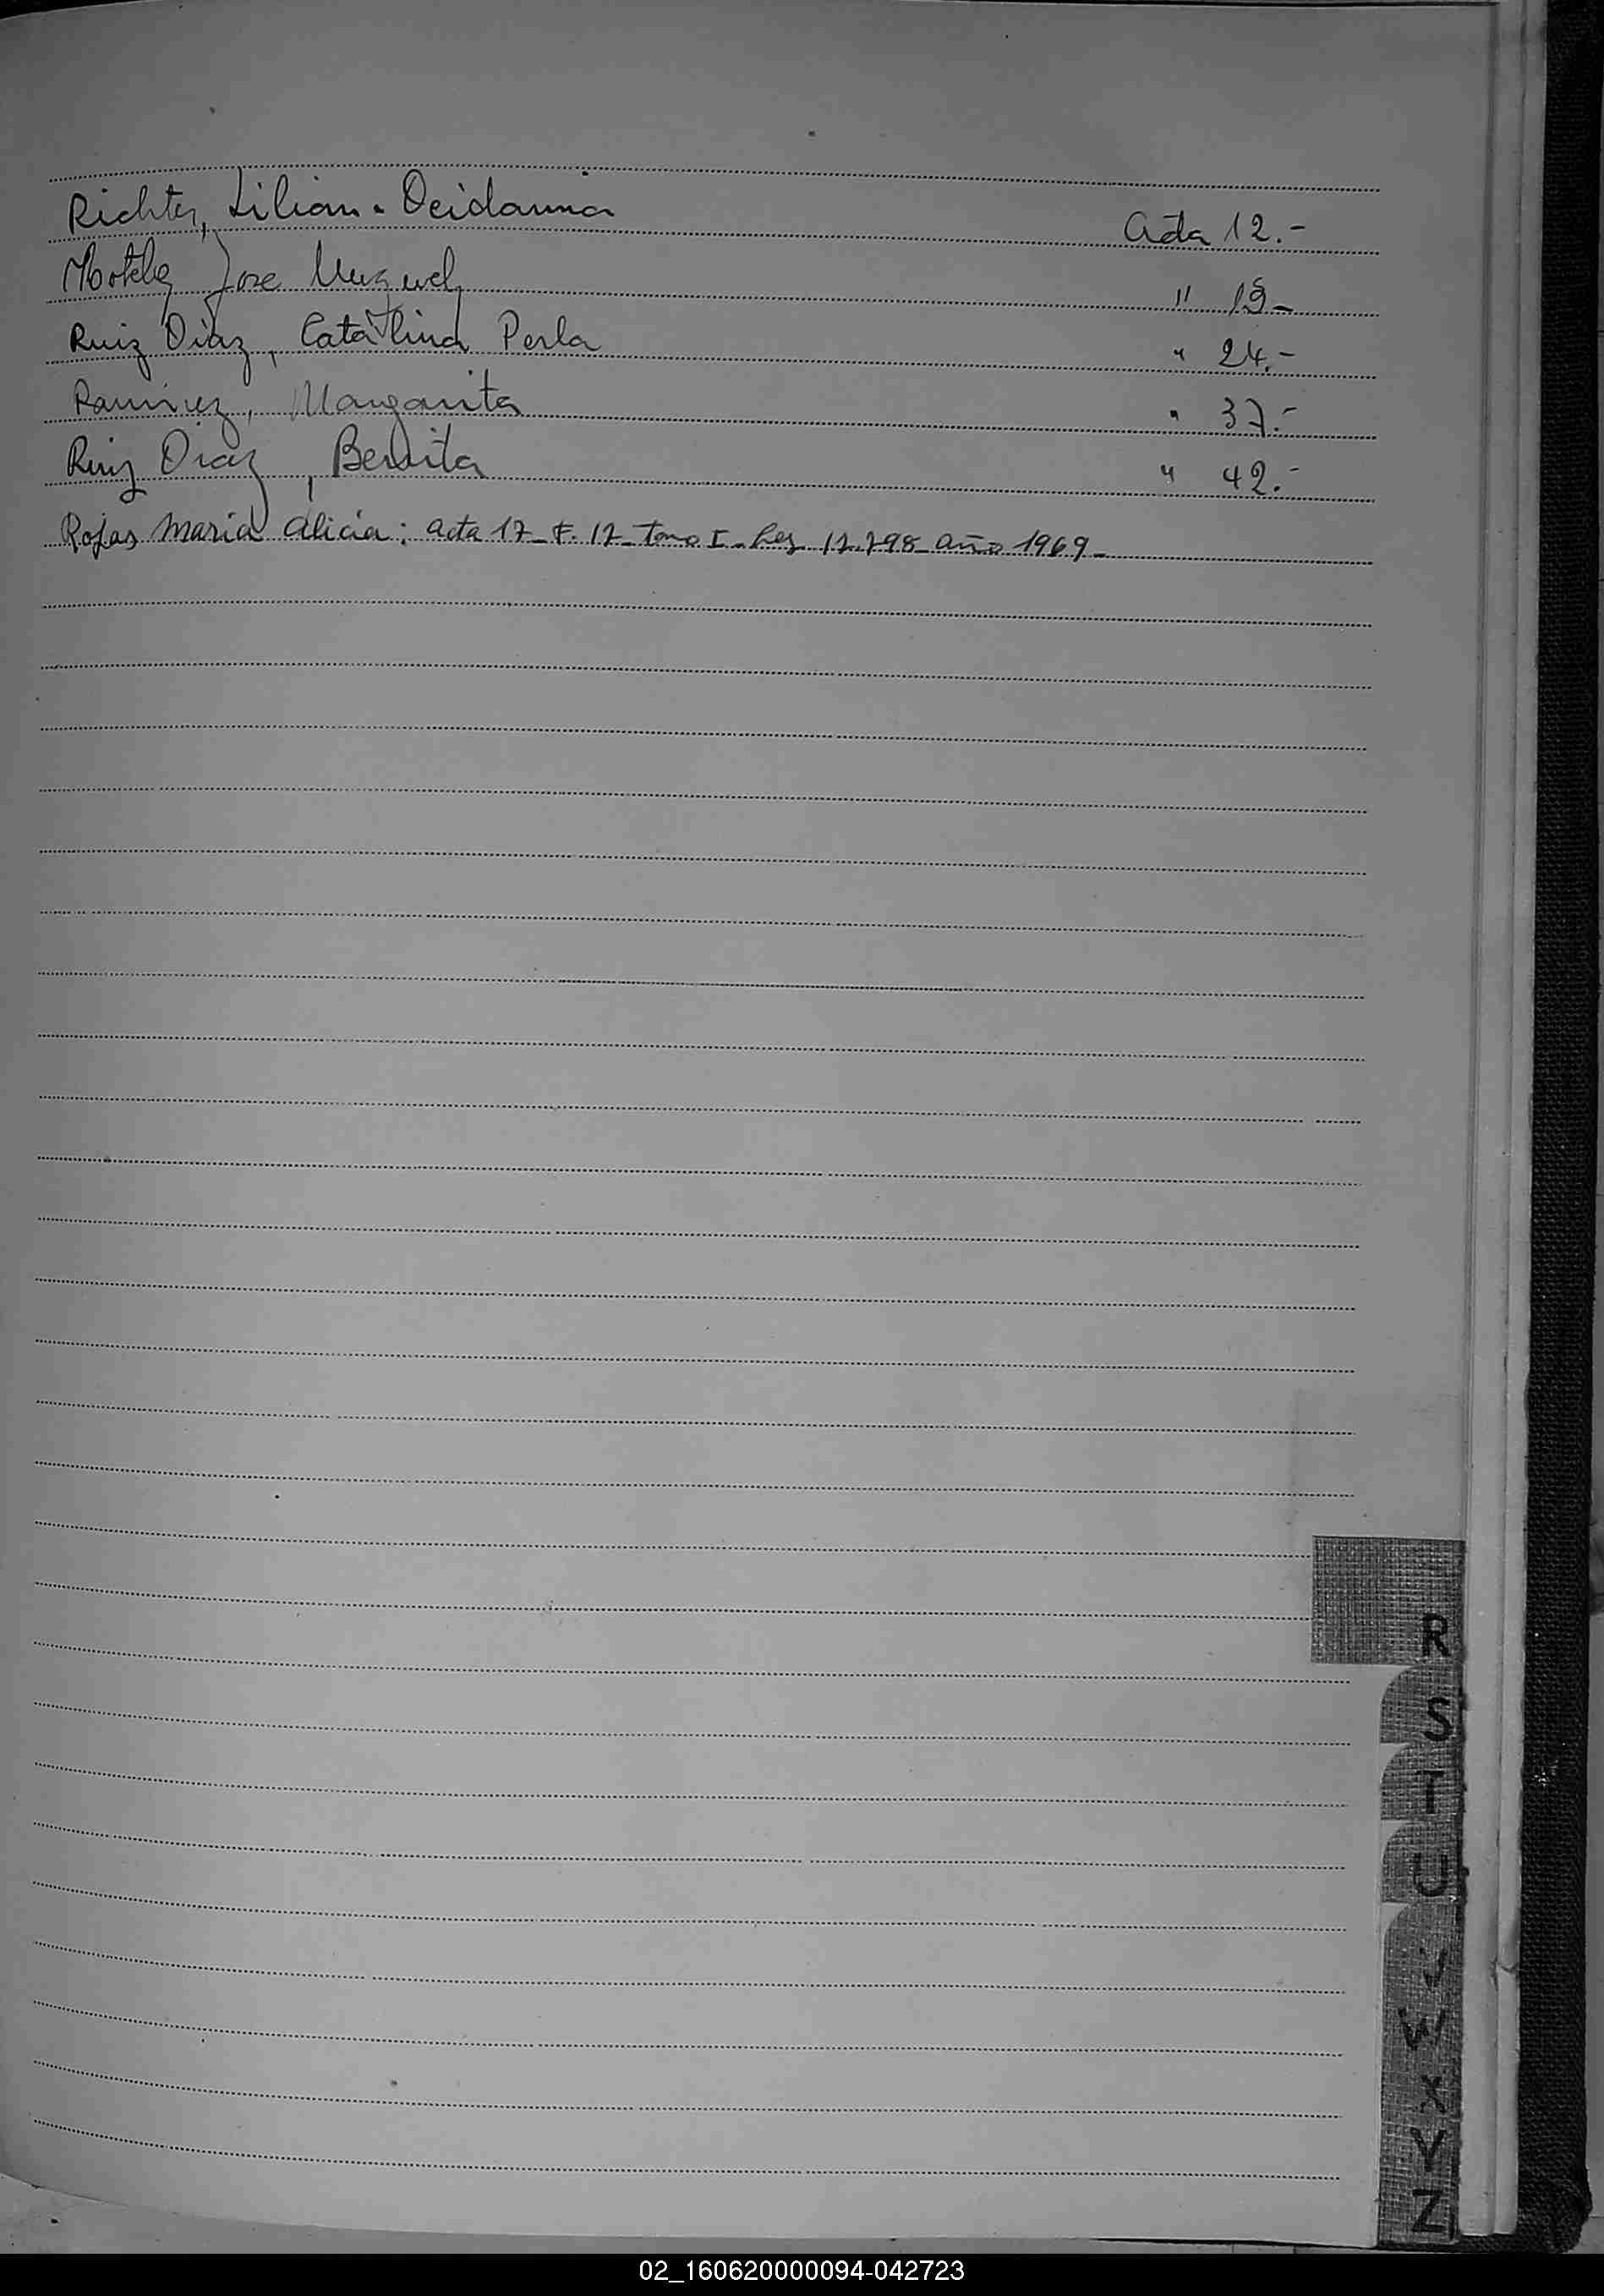 Richter, Lilian Deidamia Acta 12.-
Jose Miguel " 19-
Ruiz Diaz, Catalina Perla " 24.-
Ramirez, Margarita " 37.-
Ruiz Diaz, Benita " 42.-
Rojas Maria Alicia: acta 17- F. 17- Tomo I- Ley 17.798- año 1969-
R
S
T
U
W
X
Y
Z
02_160620000094-042723